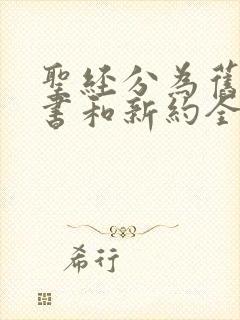 聖经分为舊
書和新約全
希行